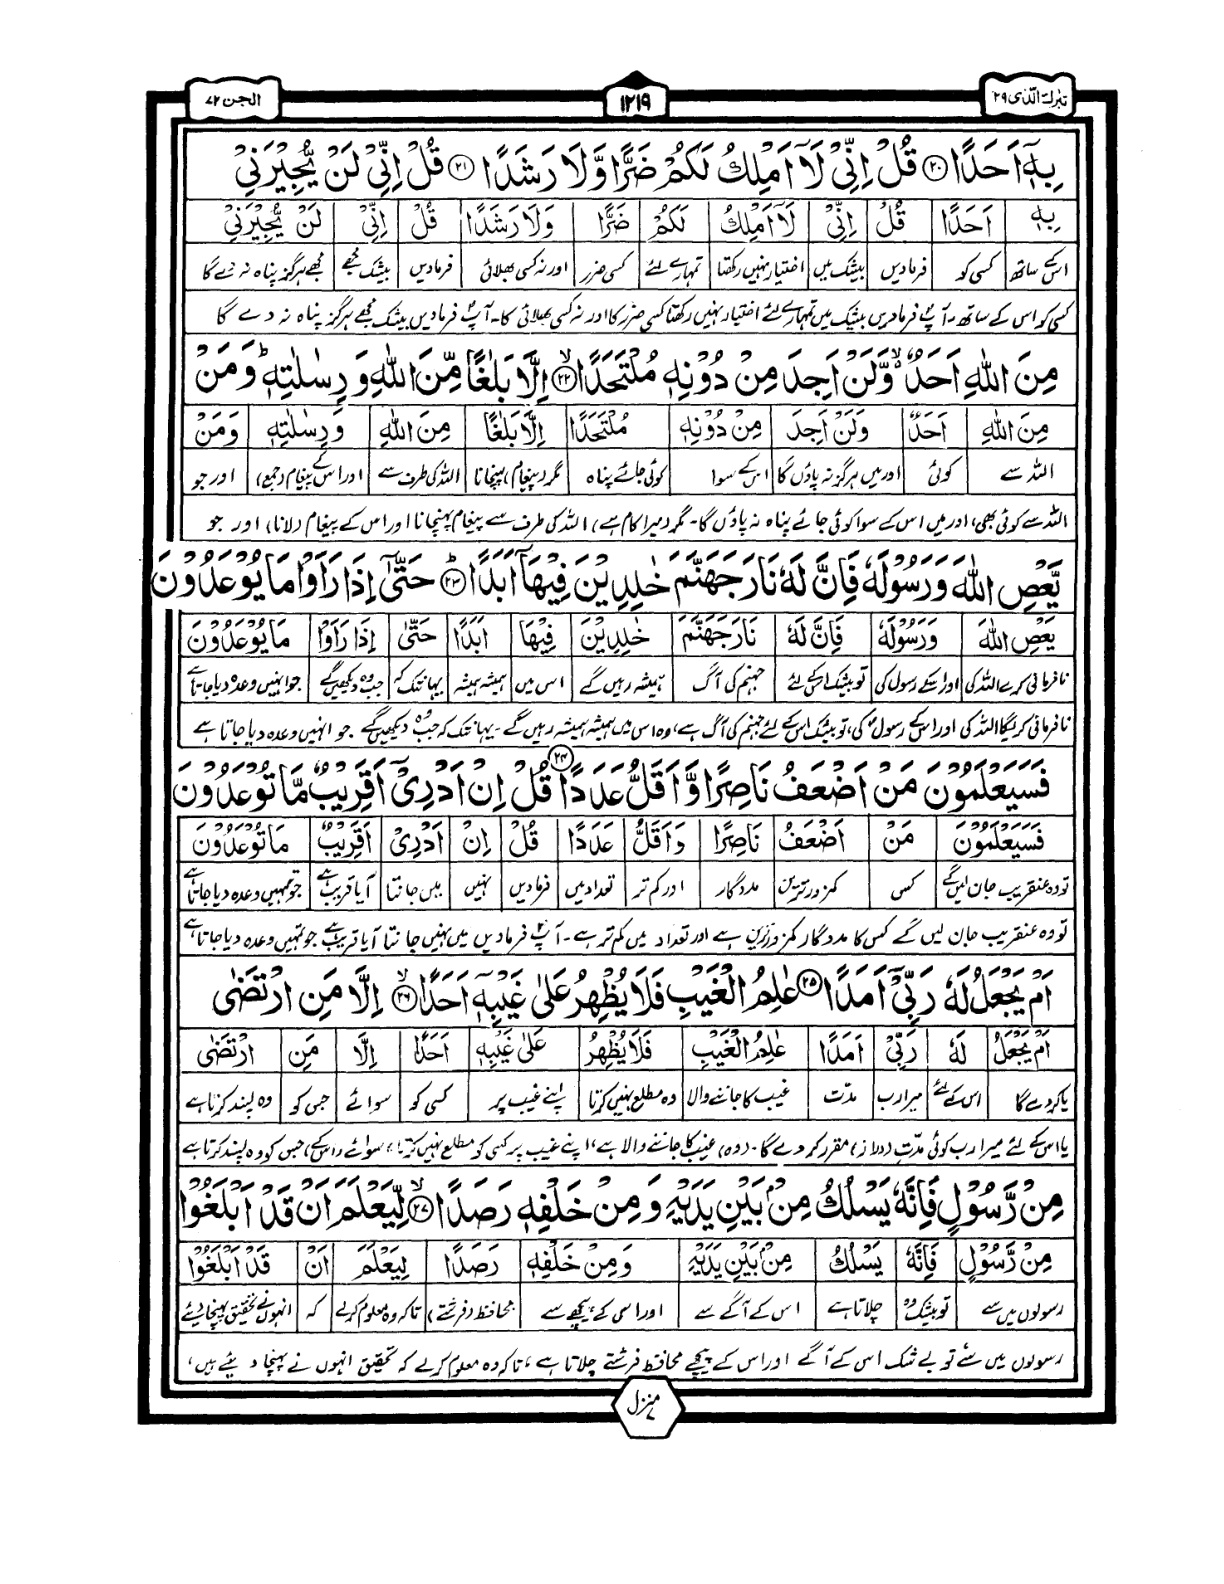 تبٰرك الّذى ۲۹
۱۲۱۹
الجن ۷۲
بِهٖٓ اَحَدًا ۝۲۰ قُلْ اِنِّیْ لَاۤ اَمْلِكُ لَكُمْ ضَرًّا وَّلَا رَشَدًا ۝۲۱ قُلْ اِنِّیْ لَنْ یُّجِیْرَنِیْ
بِهٖٓ اَحَدًا قُلْ اِنِّیْ لَاۤ اَمْلِكُ لَكُمْ ضَرًّا وَلَا رَشَدًا قُلْ اِنِّیْ لَنْ یُّجِیْرَنِیْ
اس کے ساتھ کسی کو فرمادیں بیشک میں اختیار نہیں رکھتا تمہارے لئے کسی ضرر اور نہ کسی بھلائی فرمادیں بیشک مجھے مجھے ہرگز پناہ نہ دے گا
کسی کو اس کے ساتھ۔ آپؐ فرمادیں بیشک میں تمہارے لئے اختیار نہیں رکھتا کسی ضرر کا اور نہ کسی بھلائی کا۔ آپؐ فرمادیں بیشک مجھے ہرگز پناہ نہ دے گا
مِنَ اللّٰهِ اَحَدٌ ۙ۬ وَّلَنْ اَجِدَ مِنْ دُوْنِهٖ مُلْتَحَدًا ۝۲۲ۙ اِلَّا بَلٰغًا مِّنَ اللّٰهِ وَ رِسٰلٰتِهٖ ؕ وَمَنْ
مِنَ اللّٰهِ اَحَدٌ وَلَنْ اَجِدَ مِنْ دُوْنِهٖ مُلْتَحَدًا اِلَّا بَلٰغًا مِنَ اللّٰهِ وَ رِسٰلٰتِهٖ وَمَنْ
اللہ سے کوئی اور میں ہرگز نہ پاؤں گا اس کے سوا کوئی جائے پناہ مگر (پیغام) پہنچانا اللہ کی طرف سے اور اس کے پیغام (جمع) اور جو
اللہ سے کوئی بھی، اور میں اس کے سوا کوئی جائے پناہ نہ پاؤں گا۔ مگر (میرا کام ہے) اللہ کی طرف سے پیغام پہنچانا اور اس کے پیغام (لانا) اور جو
یَّعْصِ اللّٰهَ وَرَسُوْلَهٗ فَاِنَّ لَهٗ نَارَ جَهَنَّمَ خٰلِدِیْنَ فِیْهَاۤ اَبَدًا ۝۲۳ؕ حَتّٰۤی اِذَا رَاَوْا مَا یُوْعَدُوْنَ
یَعْصِ اللّٰهَ وَرَسُوْلَهٗ فَاِنَّ لَهٗ نَارَ جَهَنَّمَ خٰلِدِیْنَ فِیْهَا اَبَدًا حَتّٰی اِذَا رَاَوْا مَا یُوْعَدُوْنَ
نافرمانی کرے اللہ کی اور اسکے رسول کی تو بیشک اس کے لئے جہنم کی آگ ہمیشہ رہیں گے اس میں ہمیشہ ہمیشہ یہانتک کہ جب وہ دیکھیں گے جو انہیں وعدہ دیا جاتا ہے
نافرمانی کریگا اللہ کی اور اس کے رسولؐ کی، تو بیشک اس کے لئے جہنم کی آگ ہے، وہ اس میں ہمیشہ ہمیشہ رہیں گے۔ یہانتک کہ جب وہ دیکھیں گے جو انہیں وعدہ دیا جاتا ہے
فَسَیَعْلَمُوْنَ مَنْ اَضْعَفُ نَاصِرًا وَّاَقَلُّ عَدَدًا ۝۲۴ قُلْ اِنْ اَدْرِیْۤ اَقَرِیْبٌ مَّا تُوْعَدُوْنَ
فَسَیَعْلَمُوْنَ مَنْ اَضْعَفُ نَاصِرًا وَاَقَلُّ عَدَدًا قُلْ اِنْ اَدْرِیْ اَقَرِیْبٌ مَا تُوْعَدُوْنَ
تو وہ عنقریب جان لیں گے کس کمزور ترین مددگار اور کم تر تعداد میں فرمادیں نہیں میں جانتا آیا قریب ہے جو تمہیں وعدہ دیا جاتا ہے
تو وہ عنقریب جان لیں گے کس کا مددگار کمزور ترین ہے اور تعداد میں کم تر ہے۔ آپؐ فرمادیں میں نہیں جانتا آیا قریب ہے جو تمہیں وعدہ دیا جاتا ہے
اَمْ یَجْعَلُ لَهٗ رَبِّیْۤ اَمَدًا ۝۲۵ عٰلِمُ الْغَیْبِ فَلَا یُظْهِرُ عَلٰی غَیْبِهٖۤ اَحَدًا ۝۲۶ۙ اِلَّا مَنِ ارْتَضٰی
اَمْ یَجْعَلُ لَهٗ رَبِّیْ اَمَدًا عٰلِمُ الْغَیْبِ فَلَا یُظْهِرُ عَلٰی غَیْبِهٖ اَحَدًا اِلَّا مَنِ ارْتَضٰی
یا کردے گا اس کے لئے میرا رب مدّت غیب کا جاننے والا وہ مطلع نہیں کرتا اپنے غیب پر کسی کو سوائے جس کو وہ پسند کرتا ہے
یا اس کے لئے میرا رب کوئی مدّت (دراز) مقرر کردے گا۔ (وہ) غیب کا جاننے والا ہے، اپنے غیب پر کسی کو مطلع نہیں کرتا، سوائے (اس کے) جس کو وہ پسند کرتا ہے
مِنْ رَّسُوْلٍ فَاِنَّهٗ یَسْلُكُ مِنْۢ بَیْنِ یَدَیْهِ وَ مِنْ خَلْفِهٖ رَصَدًا ۝۲۷ۙ لِّیَعْلَمَ اَنْ قَدْ اَبْلَغُوْا
مِنْ رَّسُوْلٍ فَاِنَّهٗ یَسْلُكُ مِنْ بَیْنِ یَدَیْهِ وَ مِنْ خَلْفِهٖ رَصَدًا لِیَعْلَمَ اَنْ قَدْ اَبْلَغُوْا
رسولوں میں سے تو بیشک وہ چلاتا ہے اس کے آگے سے اور اسی کے پیچھے سے محافظ (فرشتے) تاکہ وہ معلوم کرلے کہ انہوں نے تحقیق پہنچا دیئے
رسولوں میں سے تو بے شک اس کے آگے اور اس کے پیچھے محافظ فرشتے چلاتا ہے، تاکہ وہ معلوم کرلے کہ تحقیق انہوں نے پہنچا دیئے ہیں،
منزل ۷